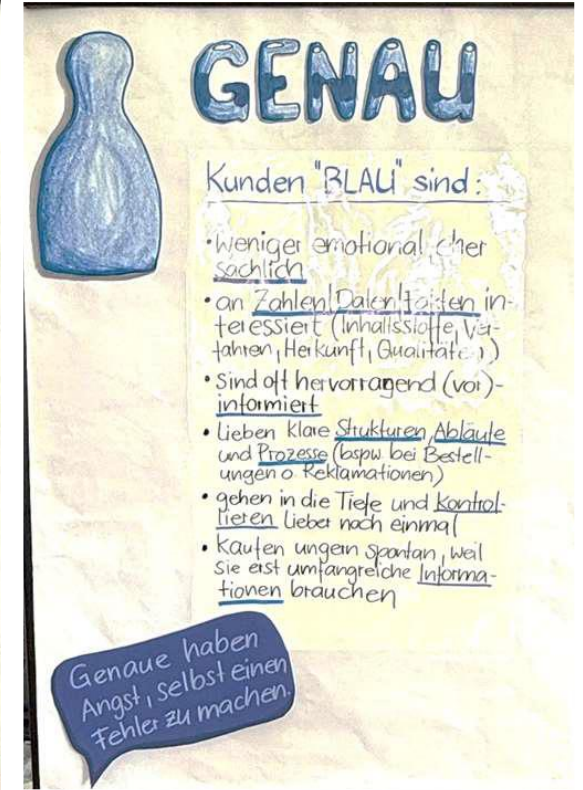 GENAU
Kunden "BLAU" sind:
• Weniger emotional, eher
sachlich
• an Zahlen/Daten/Fakten in-
teressiert (Inhaltsstoffe, Ver-
fahren, Herkunft, Qualitäten)
• Sind oft hervorragend (vor)-
informiert
• Lieben klare Strukturen, Abläufe
und Prozesse (bspw. bei Bestell-
ungen o. Reklamationen)
• gehen in die Tiefe und Kontrol-
lieren Lieber noch einmal
• Kaufen ungern spontan, weil
sie erst umfangreiche Informa-
tionen brauchen
Genaue haben
Angst, selbst einen
Fehler zu machen.